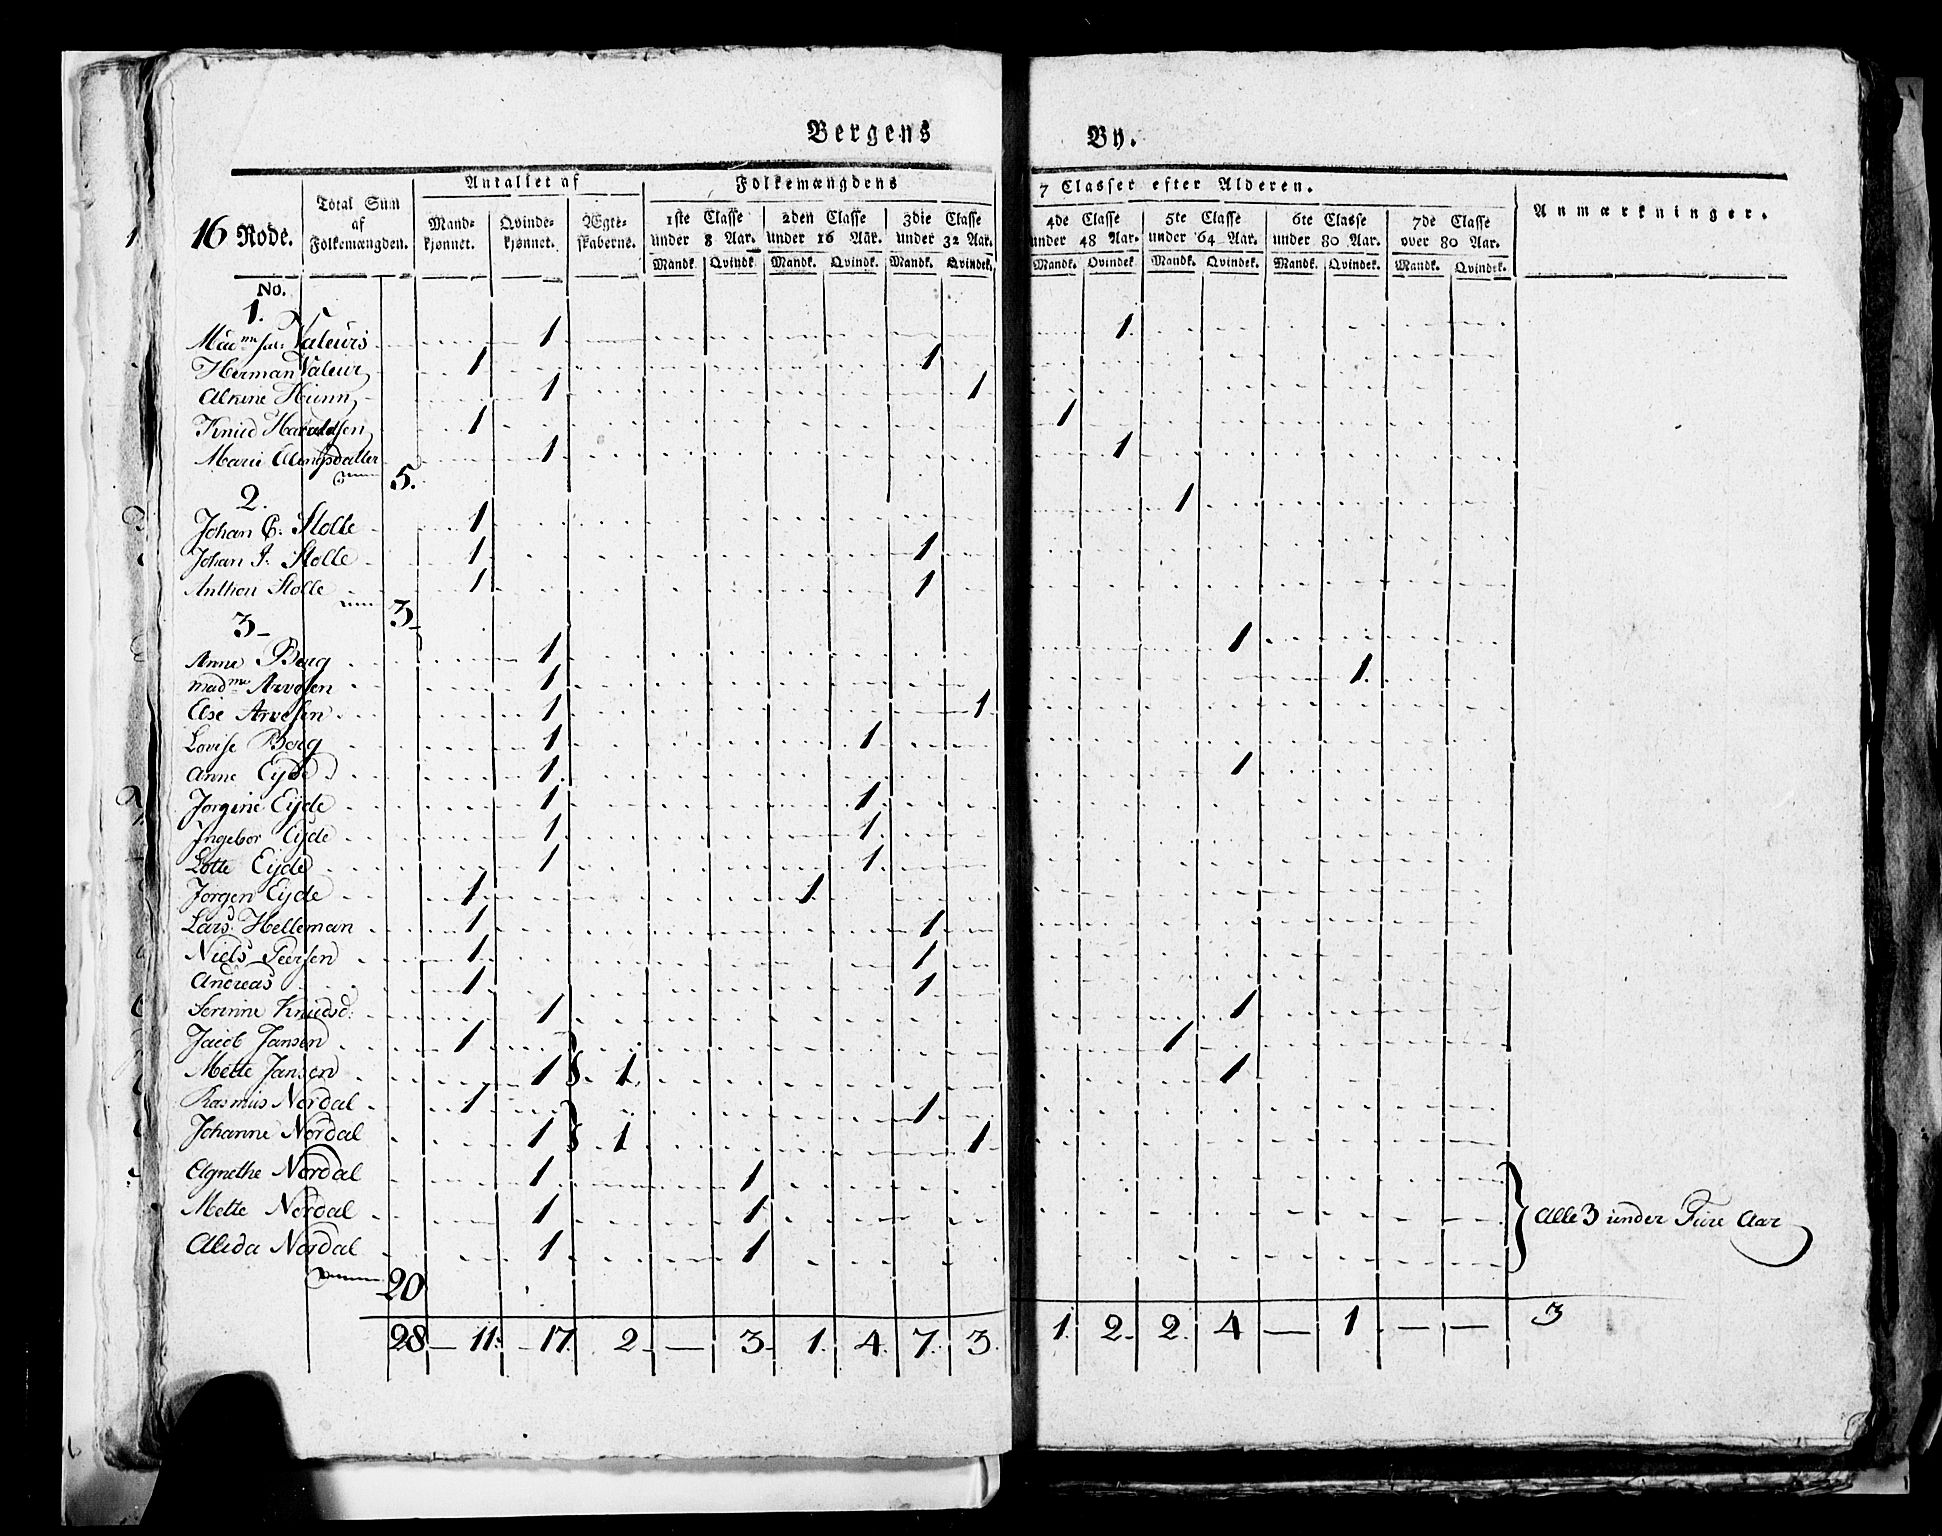 Bergens By.
16 Rode.
Total Sum af Folkemængden.
Antallet af
Mandkjønnet. Qvindekjønnet. Ægteskaberne.
Folkemængdens 7 Classer efter Alderen.
1ste Classe under 8 Aar. 2den Classe under 16 Aar. 3die Classe under 32 Aar. 4de Classe under 48 Aar. 5te Classe under 64 Aar. 6te Classe under 80 Aar. 7de Classe over 80 Aar.
Mandk. Qvindk. Mandk. Qvindk. Mandk. Qvindek. Mandk. Qvindek. Mandk. Qvindk. Mandk. Qvindek. Mandk. Qvindek.
Anmærkninger.
No.
1.
Madme sal: Valeurs 1 1
Herman Valeur 1 1
Alkine 1 1
Knud Haraldsen 1 1
Marie 1 1
5.
2.
Johan C: Stolte 1 1
Johan J. Stolte 1 1
Anthon Stolte 1 1
3
3
Anne Berg 1 1
madme Arvesen 1 1
Else Arvesen 1 1
Lovise Berg 1 1
Anne Eyde 1 1
Jorgine Eyde 1 1
Ingebor Eyde 1 1
Lotte Eyde 1 1
Jørgen Eyde 1 1
Lars Helleman 1 1
Niels Peersen 1 1
Andreas 1 1
Serinne Knudsd: 1 1
Jacob Jansen 1 1
Mette Jansen 1 1 1
Rasmus Nordal 1 1
Johanne Nordal 1 1 1
Agnethe Nordal 1 1
Mette Nordal 1 1 Alle 3 under Fire Aar
Alida Nordal 1 1
20
28 11 17 2 — 3 1 4 7 3 1 2 2 4 — 1 — — 3